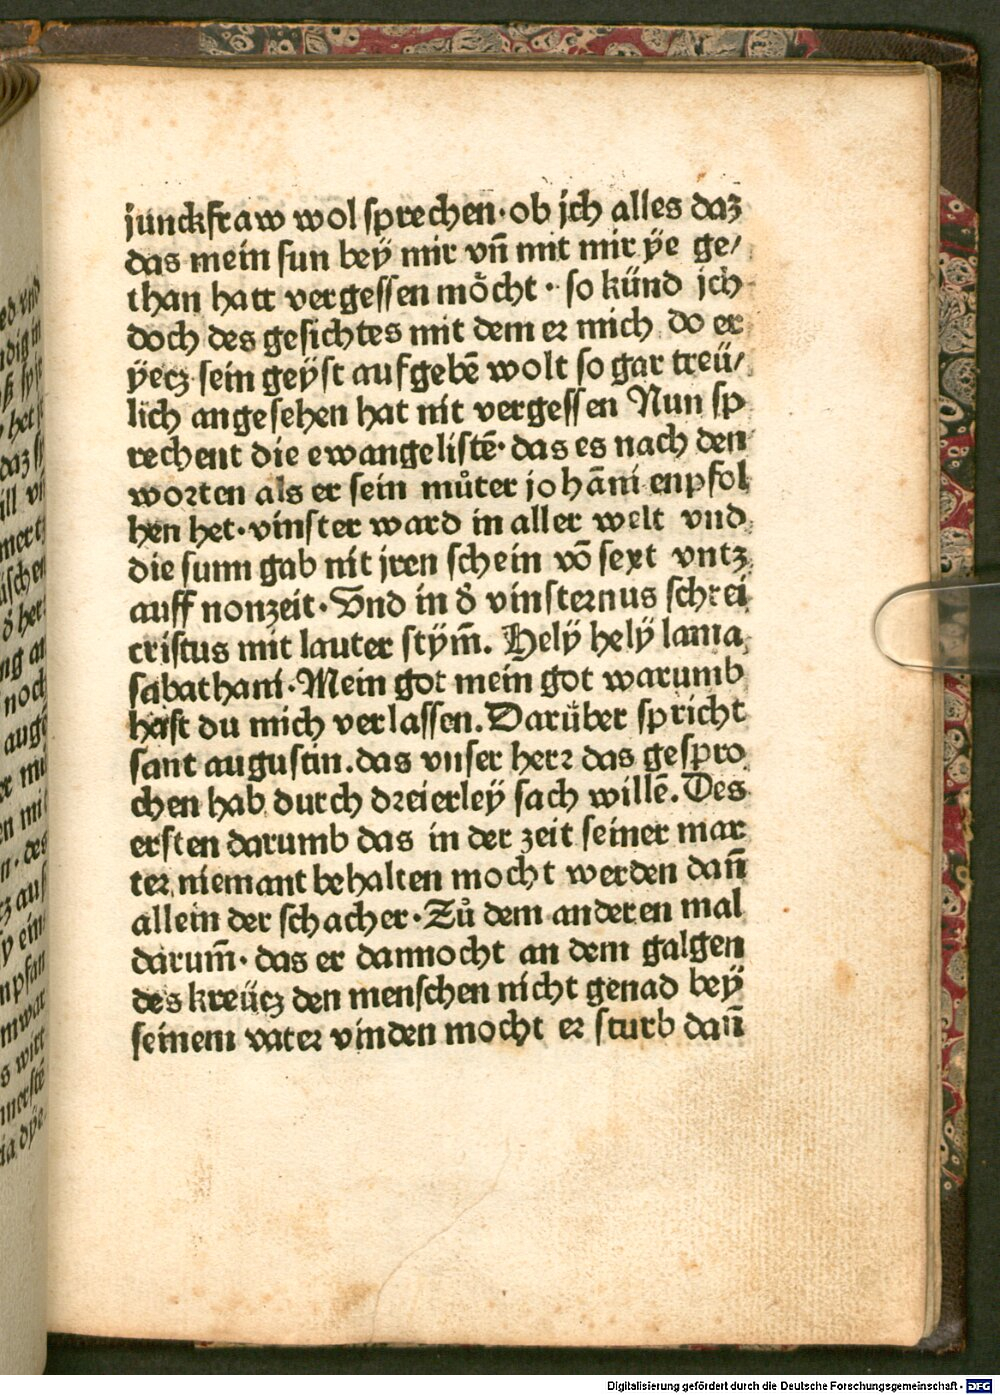 junckfraw wol sprechen·ob jch alles daz
das mein sun bey̎ mir vn̄ mit mir y̎e ge/
than hatt vergessen mo̊cht· so künd jch
doch des gesichtes mit dem eꝛ mich do er
y̎ecz sein gey̎st aufgebē wolt so gar treü/
lich angesehen hat nit vergessen Nun sp
rechent die ewangelistē·das es nach den
woꝛten als er sein můter johāni enpfol
hen het·vinster ward in aller welt vnd
die sunn gab nit jren schein vō sext vntz
auff nonzeit·Vnd in d̕ vinsternus schrei
cristus mit lauter stym̄. Hely̎ hely̎ lama
sabathani·Mein got mein got warumb
hast du mich verlassen.Darüber spricht
sant augustin.das vnser herꝛ das gespro
chen hab durch dꝛeierley̎ sach willē.Des
ersten darumb das in der zeit seiner mar
teꝛ niemant behalten mocht werden dan̄
allein der schacher·Zů dem anderen mal
darum̄·das er dannocht an dem galgen
des kreücz den menschen nicht genad bey̎
seinem vateꝛ vinden mocht eꝛ sturb dan̄
Digitalisierung gefördert durch die Deutsche Forschungsgemeinschaft - DFG